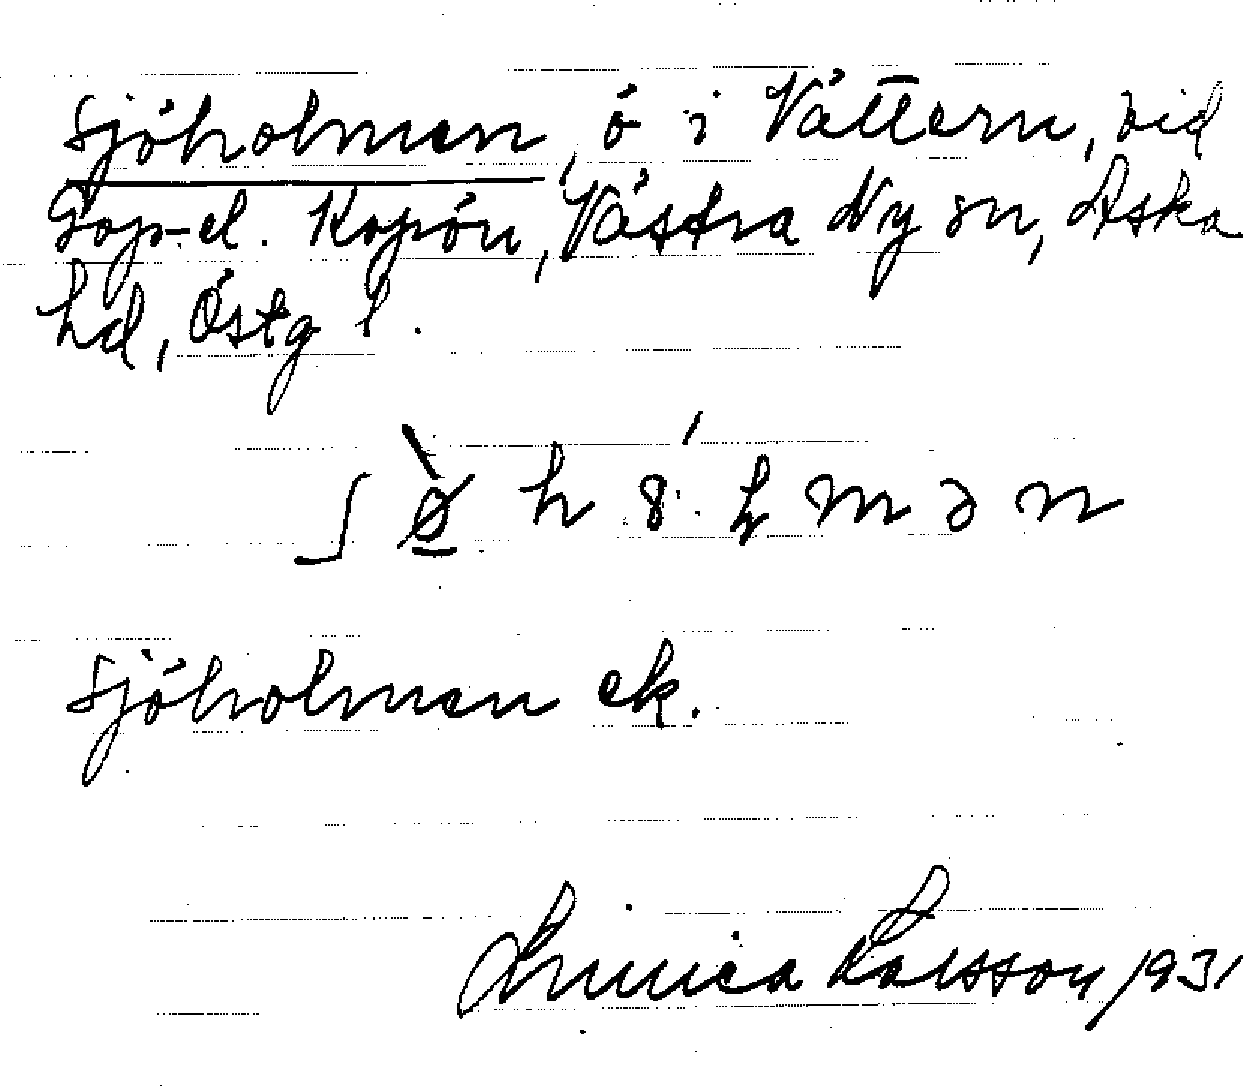 Sjöholmen, ö i Vättern, vid
Gop- el. Kopön, Västra Ny sn, Aska
hd, Östg l.
Sjöholmen ek.
Larsson 1931